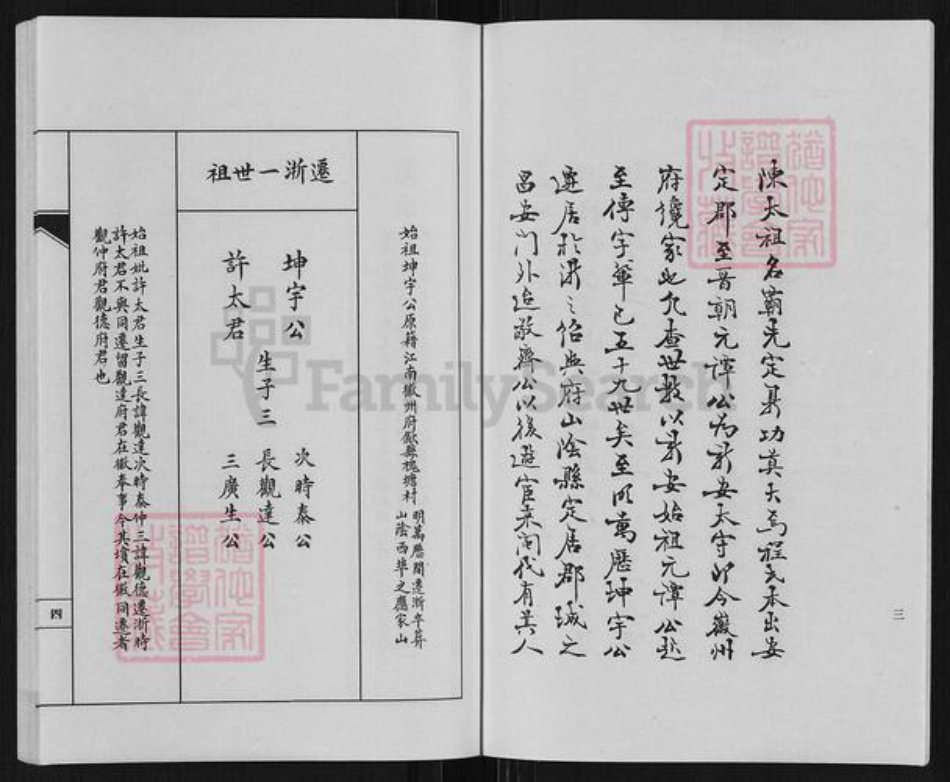 陳太祖名霸先定鼎功莫大焉程氏本出安
定郡至晉朝元譚公為新安太守即今徽州
府後家此凡查世數以新安始祖元譚公起
至傳字輩已五十九世矣至明萬歷坤宇公
遷居於浙之紹興府山陰縣定居郡城之
昌安門外迨敬齋公以後遊宦來閩代有其人
三
始祖坤宇公原籍江南徽州府歙縣槐塘村 明萬歷間遷浙卒葬
山陰西埠之應家山
遷浙一世祖
坤宇公
許太君
生子三
次時泰公
長觀達公
三廣生公
始祖妣許太君生子三長諱觀達次時泰仲三諱觀德遷浙時
許太君不與同遷留觀達府君在徽奉事今其墳在徽同遷者
觀仲府君觀德府君也
四
FamilySearch